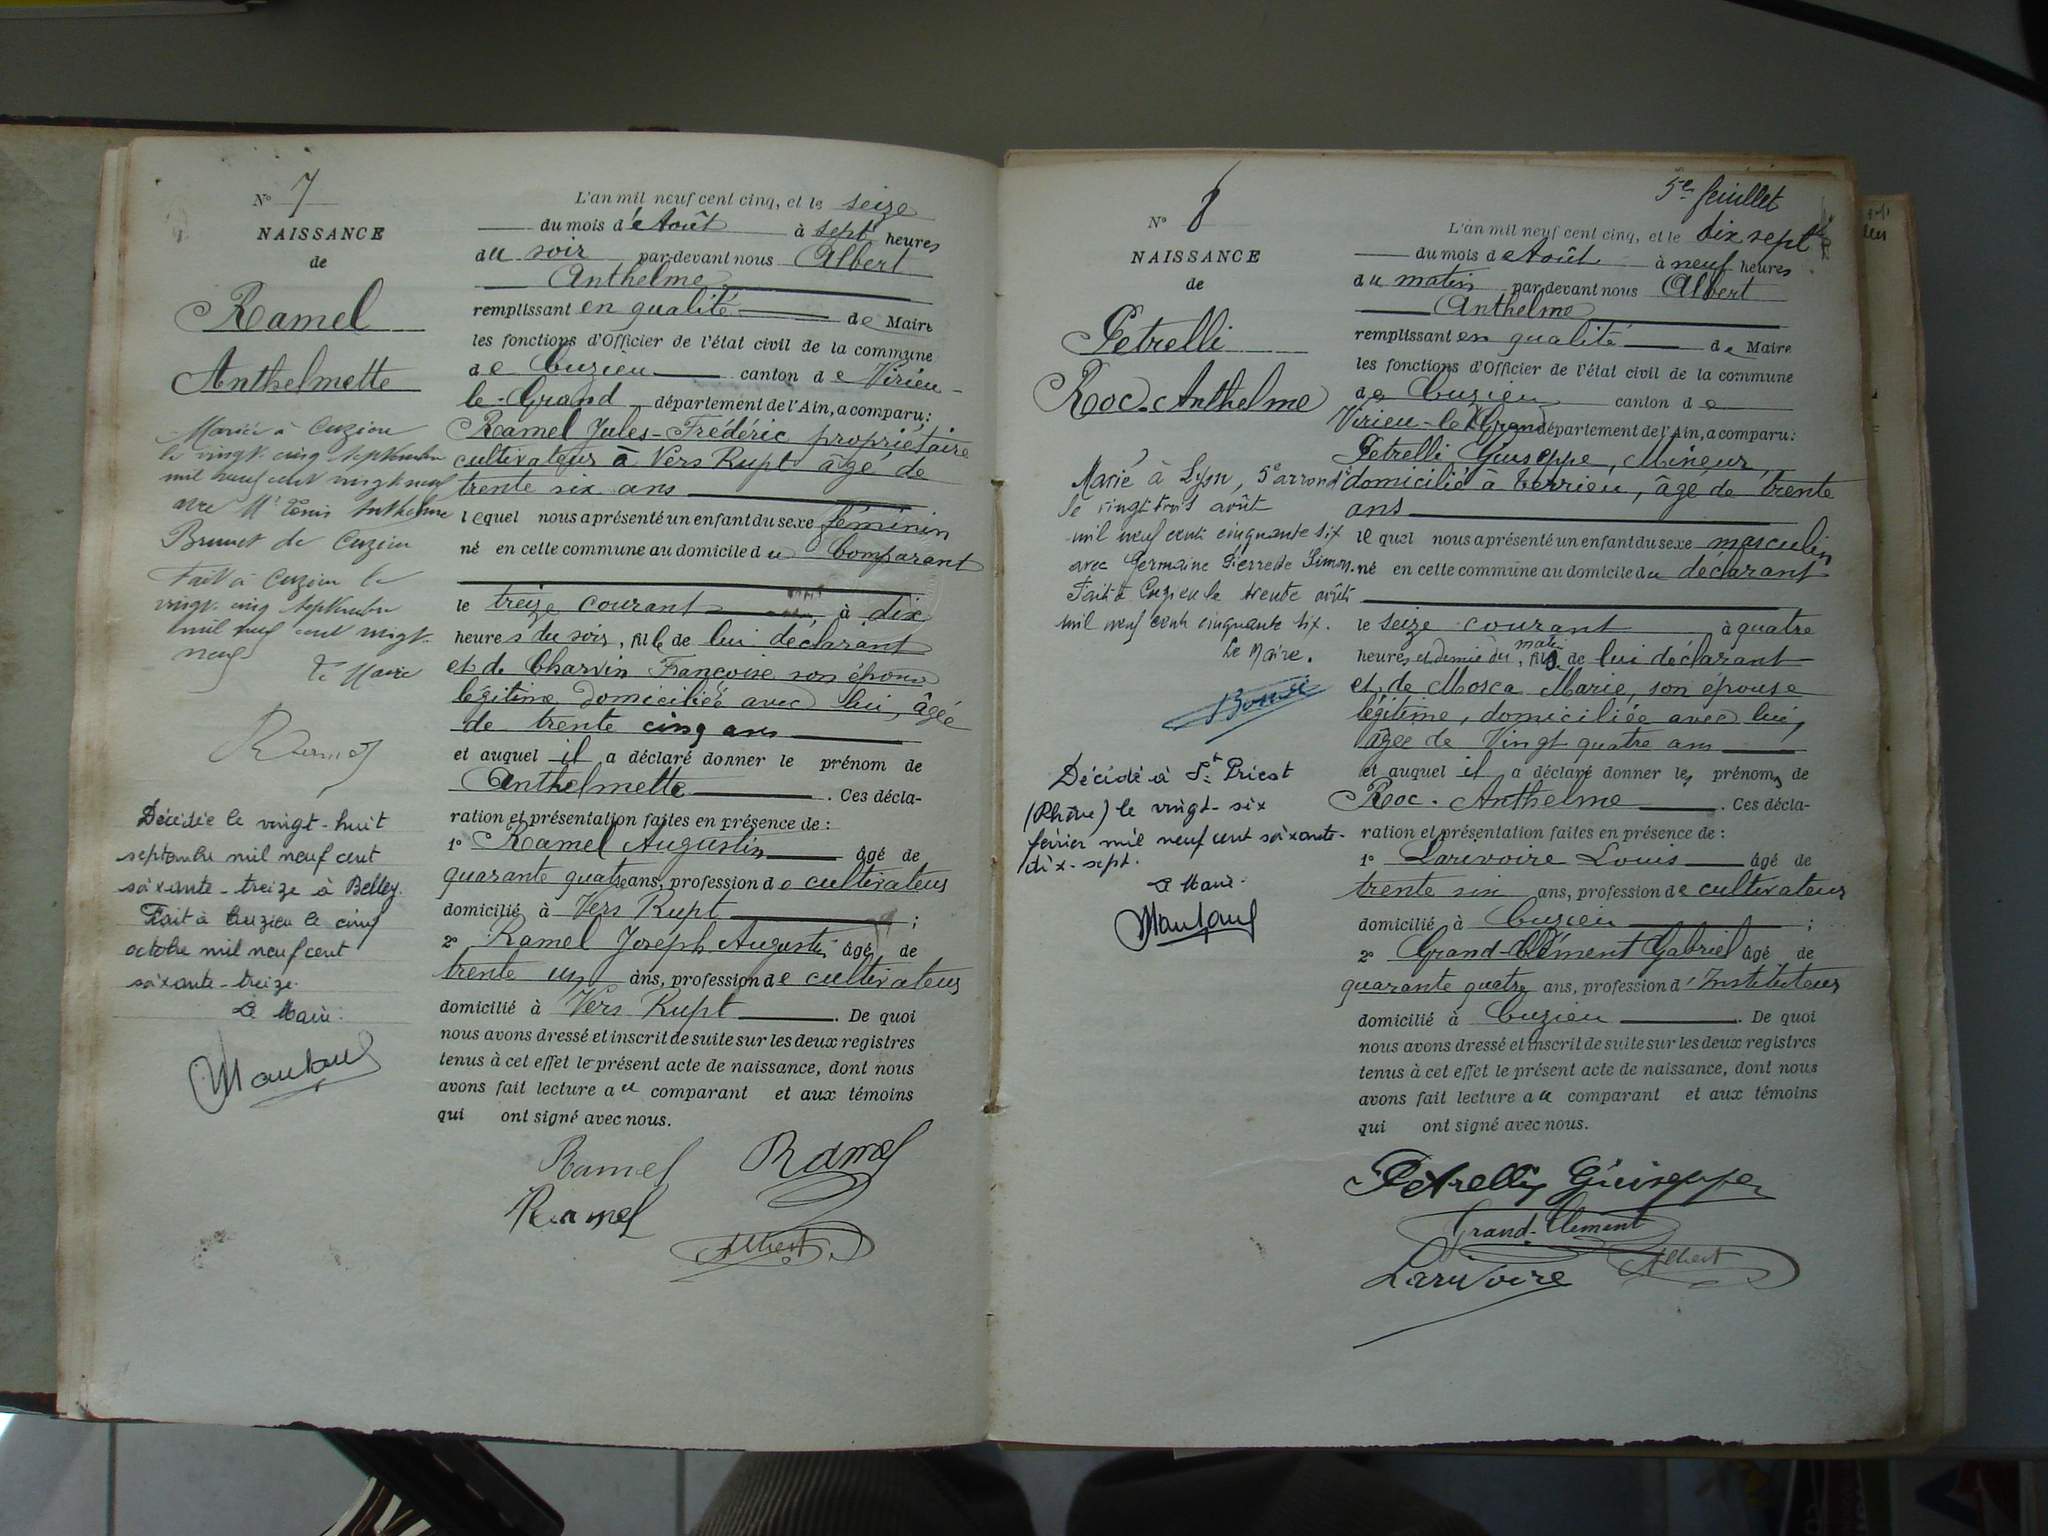 N° 7
NAISSANCE
de
Ramel
Anthelmette
Mariée à Cuzieu
le vingt-cinq septembre
mil neuf cent vingt neuf
avec Mr Anthelme
Brunet de Cuzieu
Fait à Cuzieu le
vingt-cinq septembre
mil neuf cent vingt-
neuf
Le Maire
Décédée le vingt-huit
septembre mil neuf cent
soixante-treize à Belley.
Fait à Cuzieu le cinq
octobre mil neuf cent
soixante-treize.
Le Maire.
L'an mil neuf cent cinq, et le seize
du mois de Août à sept heures
du soir par-devant nous Albert
Anthelme
remplissant en qualité de Maire
les fonctions d'Officier de l'état civil de la commune
de Cuzieu canton de Virieu-
le-Grand département de l'Ain, a comparu:
Ramel Jules-Frédéric propriétaire
cultivateur à Vers Rupt âgé de
trente six ans
lequel nous a présenté un enfant du sexe féminin
né en cette commune au domicile du Comparant
le treize courant à dix
heures du soir, fille de lui déclarant
et de Charvin Françoise son épouse
légitime domiciliée avec lui, âgée
de trente cinq ans
et auquel il a déclaré donner le prénom de
Anthelmette. Ces décla-
ration et présentation faites en présence de:
1° Ramel Augustin âgé de
quarante quatre ans, profession de cultivateur
domicilié à Vers Rupt;
2° Ramel Joseph Augustin âgé de
trente un ans, profession de cultivateur
domicilié à Vers Rupt. De quoi
nous avons dressé et inscrit de suite sur les deux registres
tenus à cet effet le présent acte de naissance, dont nous
avons fait lecture au comparant et aux témoins
qui ont signé avec nous.
Ramel Ramel
Ramel
Albert
5e feuillet
N° 8
NAISSANCE
de
Petrelli
Roc-Anthelme
Marié à Lyon, 5e arrondt
le vingt trois août
mil neuf cent cinquante six
avec Germaine Pierrette Simon.
Fait à Cuzieu le trente août
mil neuf cent cinquante six.
Le Maire.
Décédé à St Priest
(Rhône) le vingt-six
février mil neuf cent soixante-
dix-sept.
Le Maire.
L'an mil neuf cent cinq, et le dix sept
du mois de Août à neuf heures
du matin par-devant nous Albert
Anthelme
remplissant en qualité de Maire
les fonctions d'Officier de l'état civil de la commune
de Cuzieu canton de
Virieu-le-Grand département de l'Ain, a comparu:
Petrelli Giuseppe, Mineur,
domicilié à, âgé de trente
ans
lequel nous a présenté un enfant du sexe masculin
né en cette commune au domicile du déclarant
le seize courant à quatre
heures et demie du matin, fils de lui déclarant
et de Mosca Marie, son épouse
légitime, domiciliée avec lui,
âgée de Vingt quatre ans
et auquel il a déclaré donner les prénoms de
Roc-Anthelme. Ces décla-
ration et présentation faites en présence de:
1° Larivoire Louis âgé de
trente six ans, profession de cultivateur
domicilié à Cuzieu;
2° Grand-Clément Gabriel âgé de
quarante quatre ans, profession d'Instituteur
domicilié à Cuzieu. De quoi
nous avons dressé et inscrit de suite sur les deux registres
tenus à cet effet le présent acte de naissance, dont nous
avons fait lecture au comparant et aux témoins
qui ont signé avec nous.
Petrelli Giuseppe
Grand-Clément
Larivoire Albert